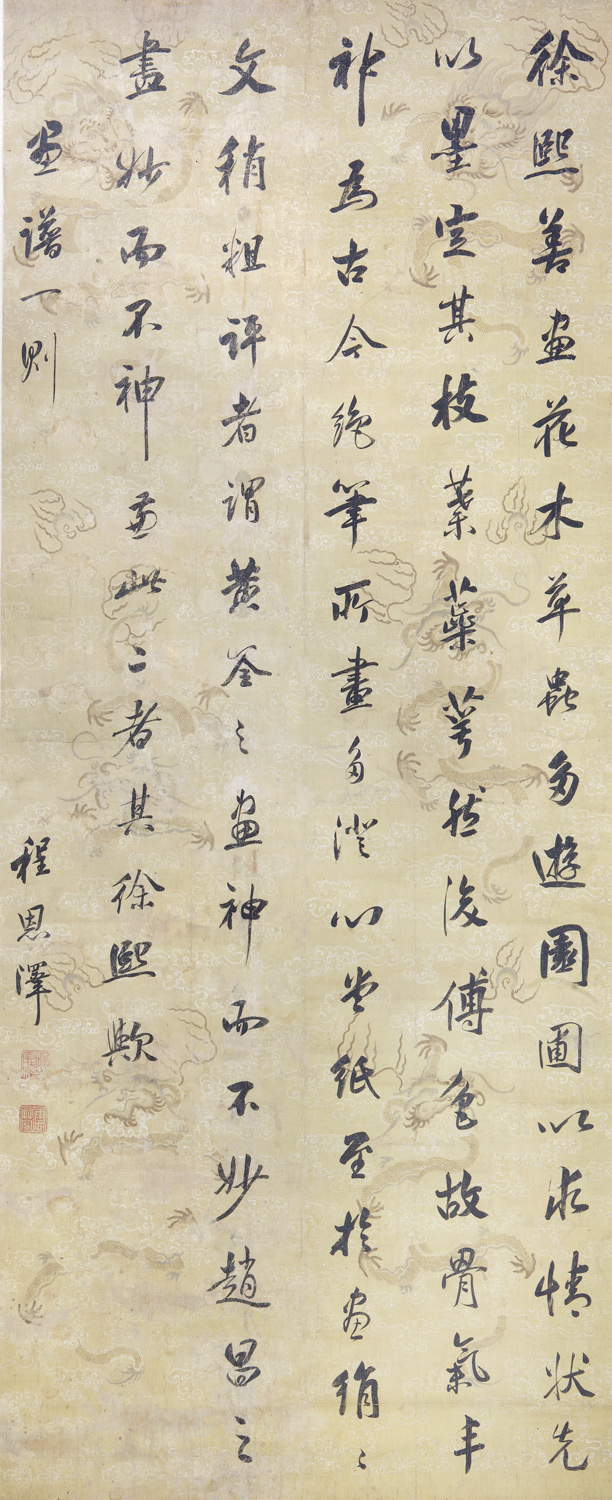 徐熙善畫花木草蟲多遊園圃以求情狀先
以墨定其枝葉蘂萼然後傅色故骨氣丰
神為古今絕筆所畫多澄心堂紙至於畫絹〻
文稍粗評者謂黃荃之畫神而不妙趙昌之
畫妙而不神兼此二者其徐熙歟
畫譜一則
程恩澤